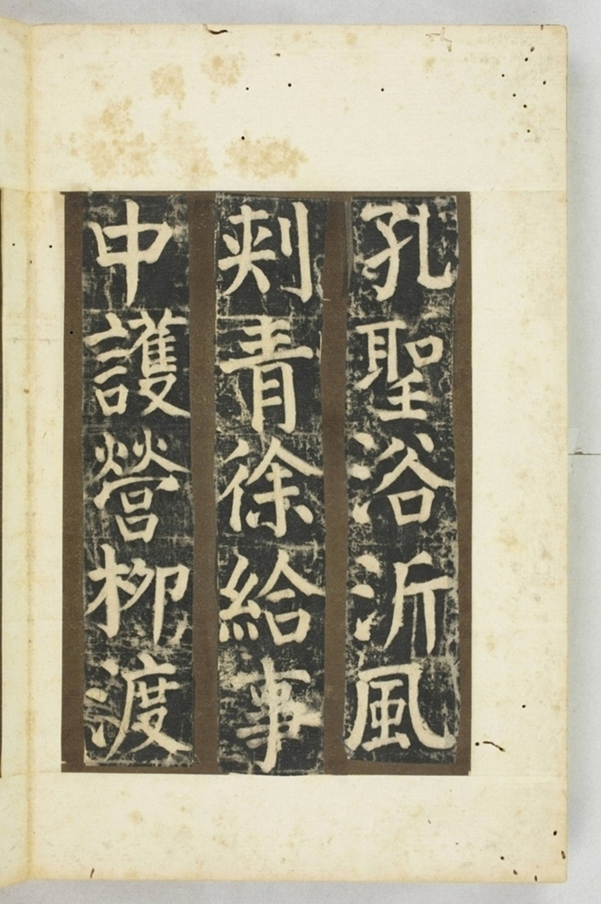 孔聖浴沂風
刾青徐給事
中護營柳渡